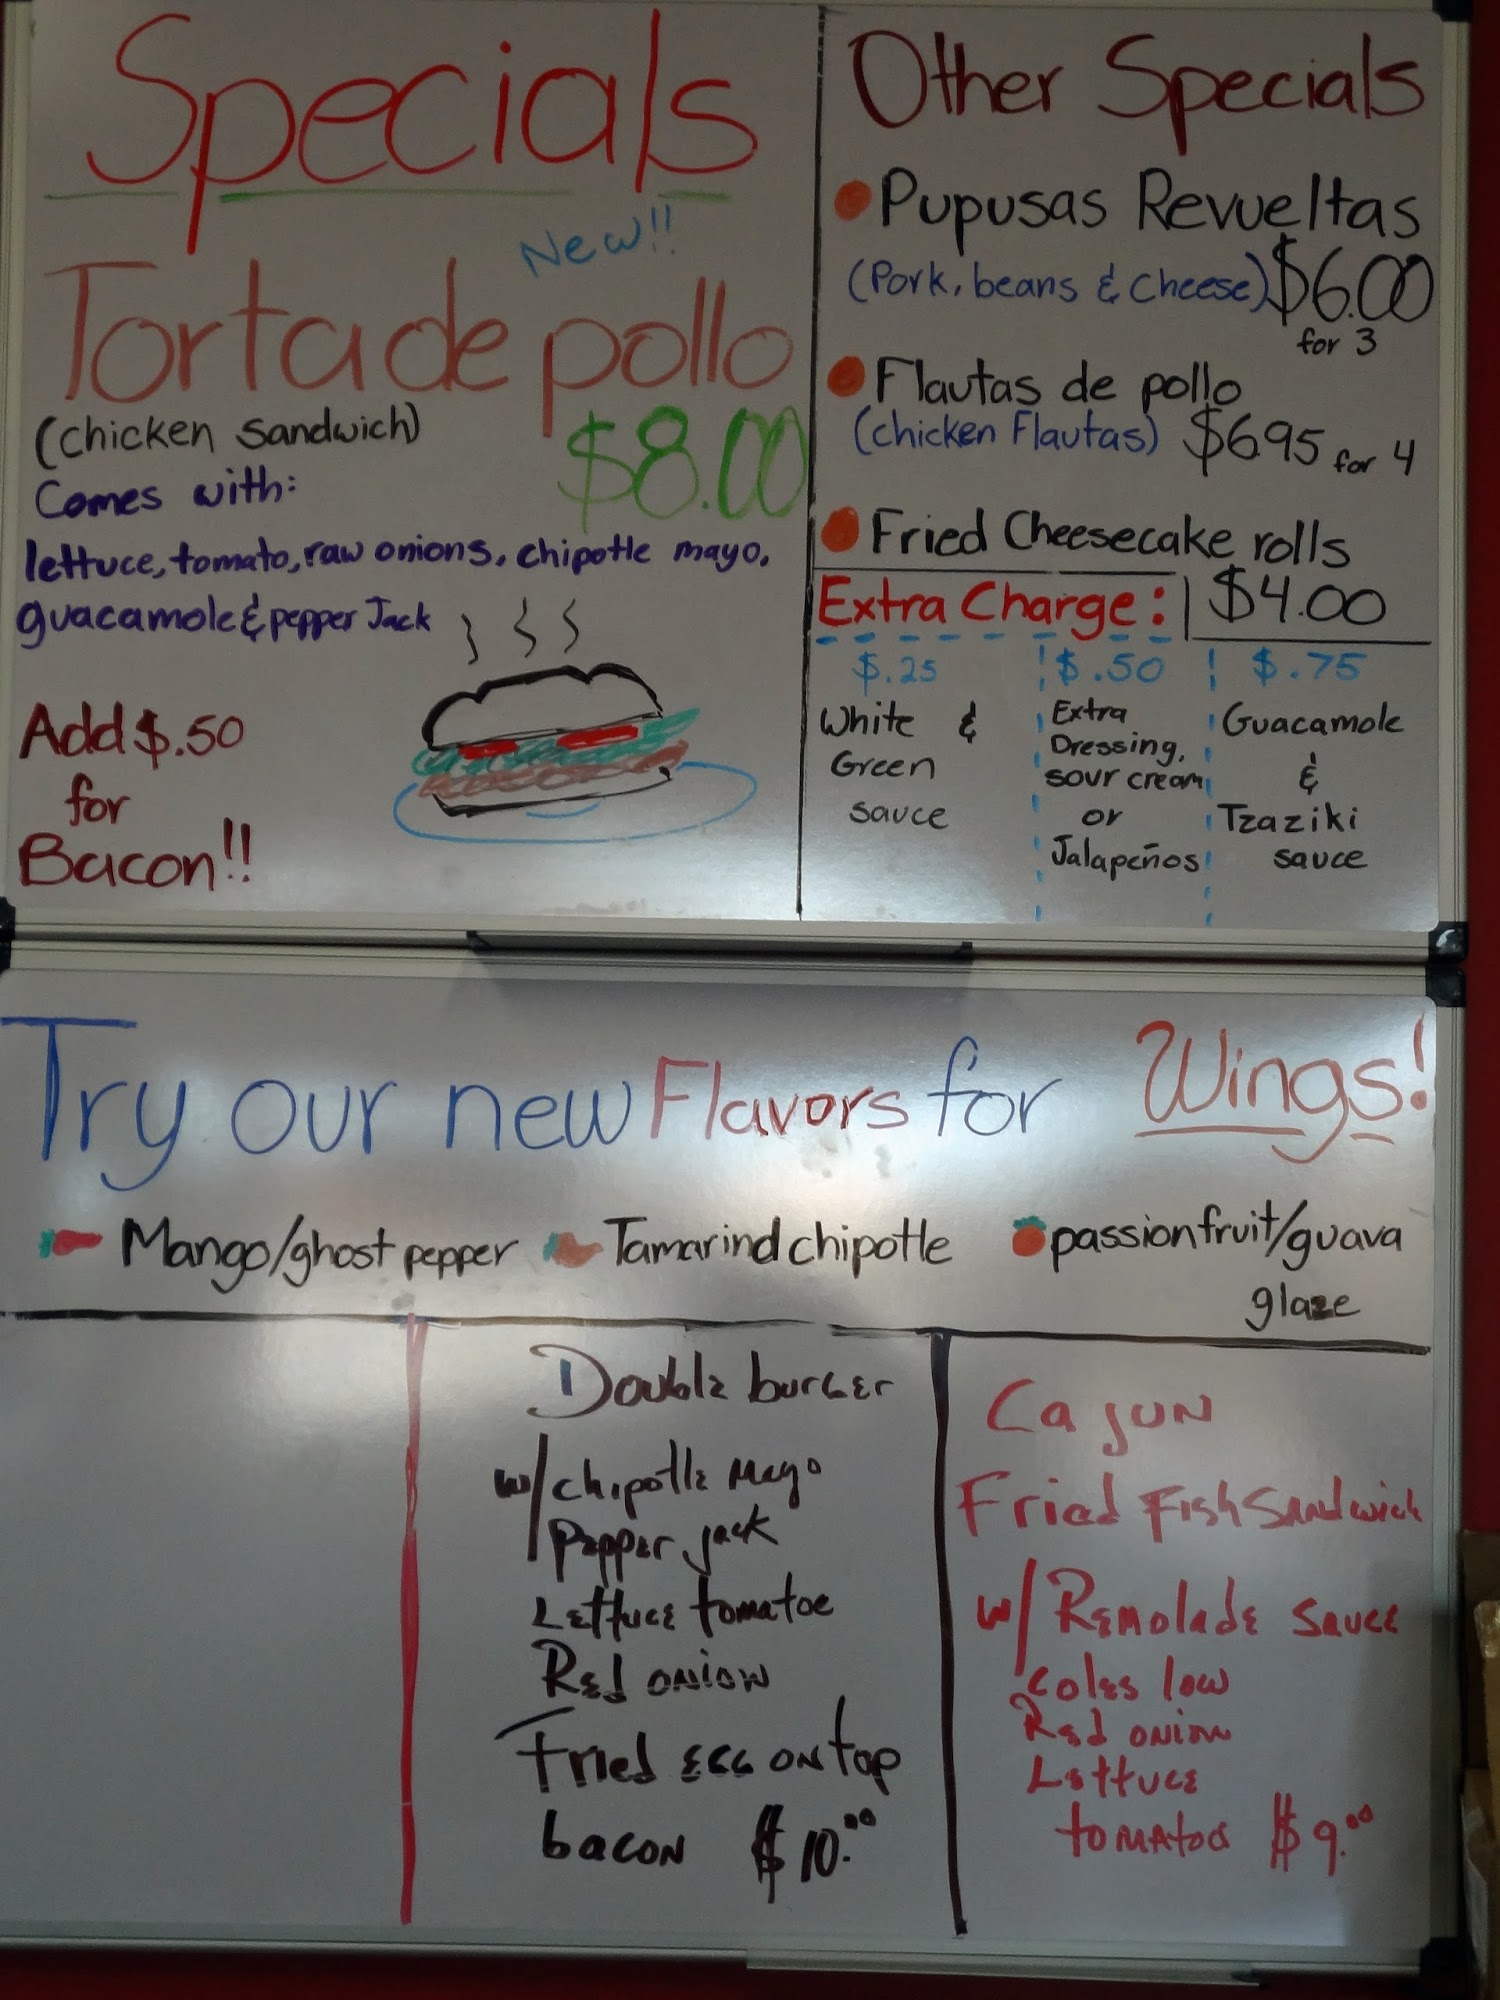 Specials
New!!
Torta de pollo
(chicken sandwich)
$8.00
Comes with:
lettuce, tomato, raw onions, chipotle mayo,
guacamole & pepper Jack
Add $.50
for
Bacon!!
Other Specials
Pupusas Revueltas
(Pork, beans & cheese) $6.00
for 3
Flautas de pollo
(chicken Flautas) $6.95 for 4
Fried Cheesecake rolls
$4.00
Extra Charge:
$.25
White &
Green
sauce
$.50
Extra
Dressing,
sour cream
or
Jalapeños
$.75
Guacamole
&
Tzaziki
sauce
Try our new Flavors for Wings!
Mango/ghost pepper Tamarind chipotle passionfruit/guava
glaze
Double burger
w/chipotle mayo
pepper jack
Lettuce tomatoe
Red onion
Fried egg on top
bacon $10.00
Cajun
Fried Fish Sandwich
w/ Remolade sauce
coles low
Red onion
Lettuce
tomatoo $9.00